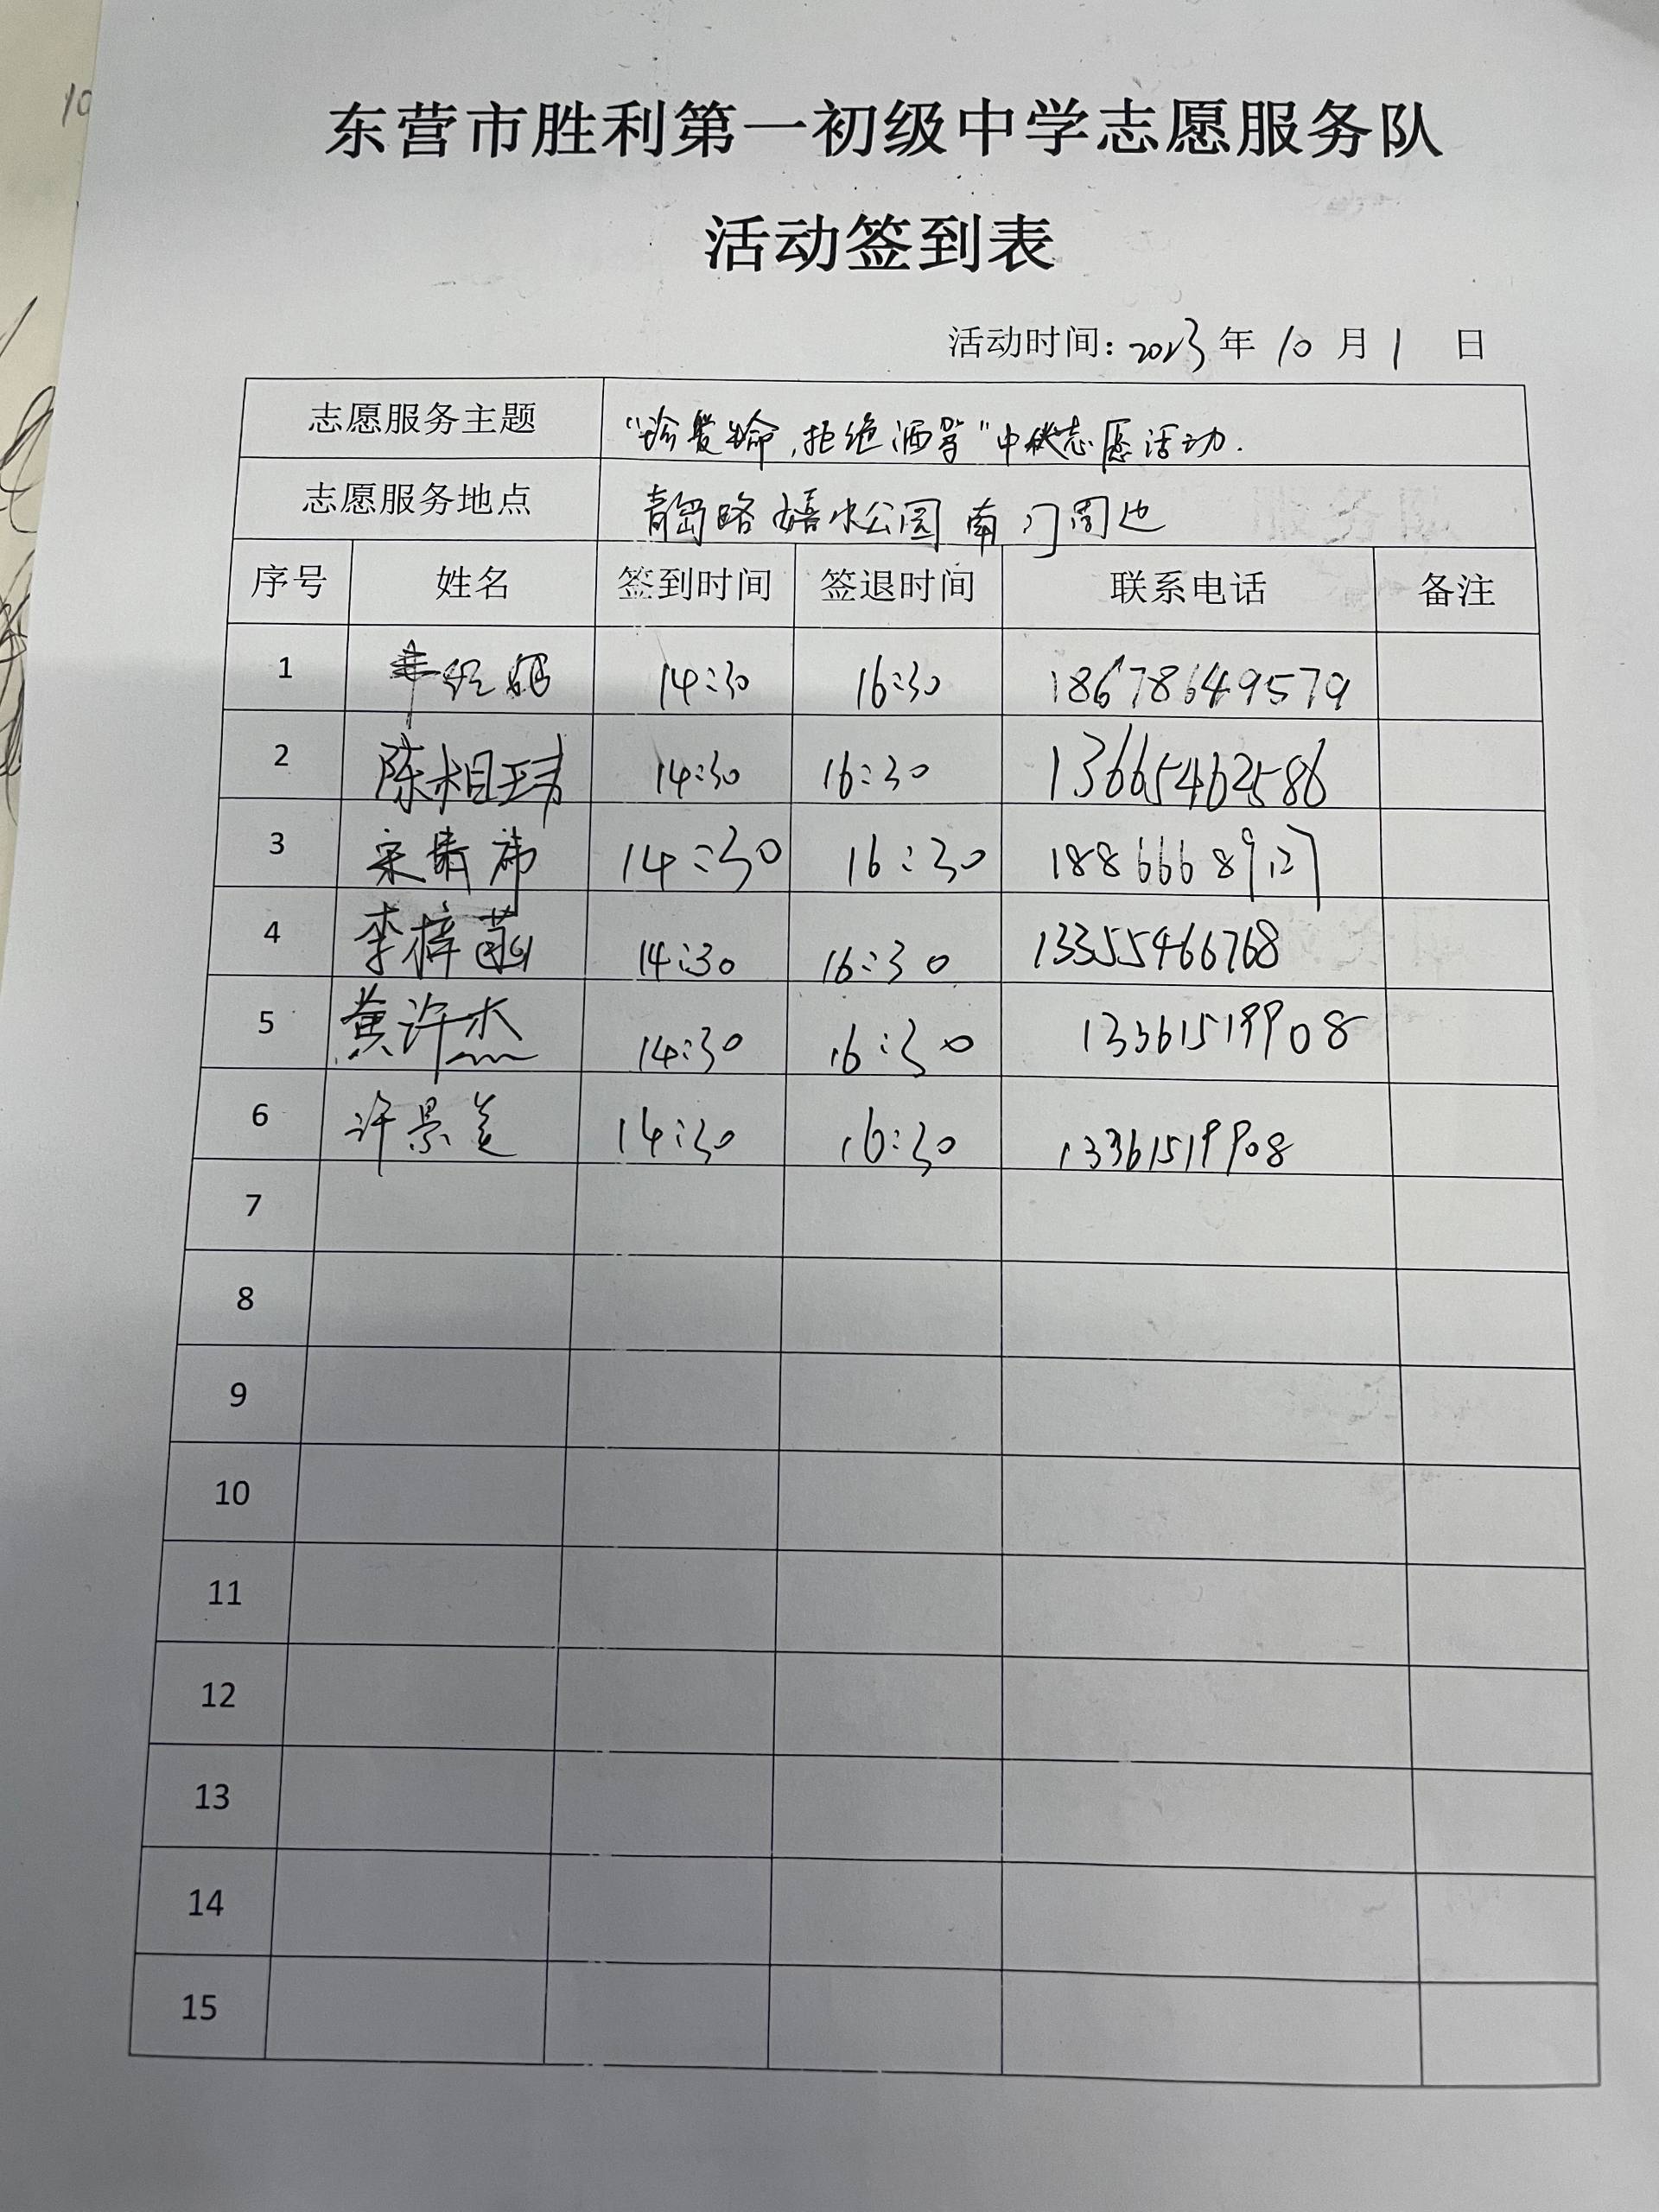 东营市胜利第一初级中学志愿服务队
活动签到表
活动时间：2023年10月1日
志愿服务主题 “珍爱生命，拒绝酒驾”中秋志愿活动.
志愿服务地点 青岛路嬉水公园南门周边
序号 姓名 签到时间 签退时间 联系电话 备注
1 14:30 16:30 18678649579
2 陈相玮 14:30 16:30 13665462586
3 宋 14:30 16:30 18866689127
4 李梓菡 14:30 16:30 13355466768
5 黄许杰 14:30 16:30 13361519908
6 许景 14:30 16:30 13361519908
7
8
9
10
11
12
13
14
15